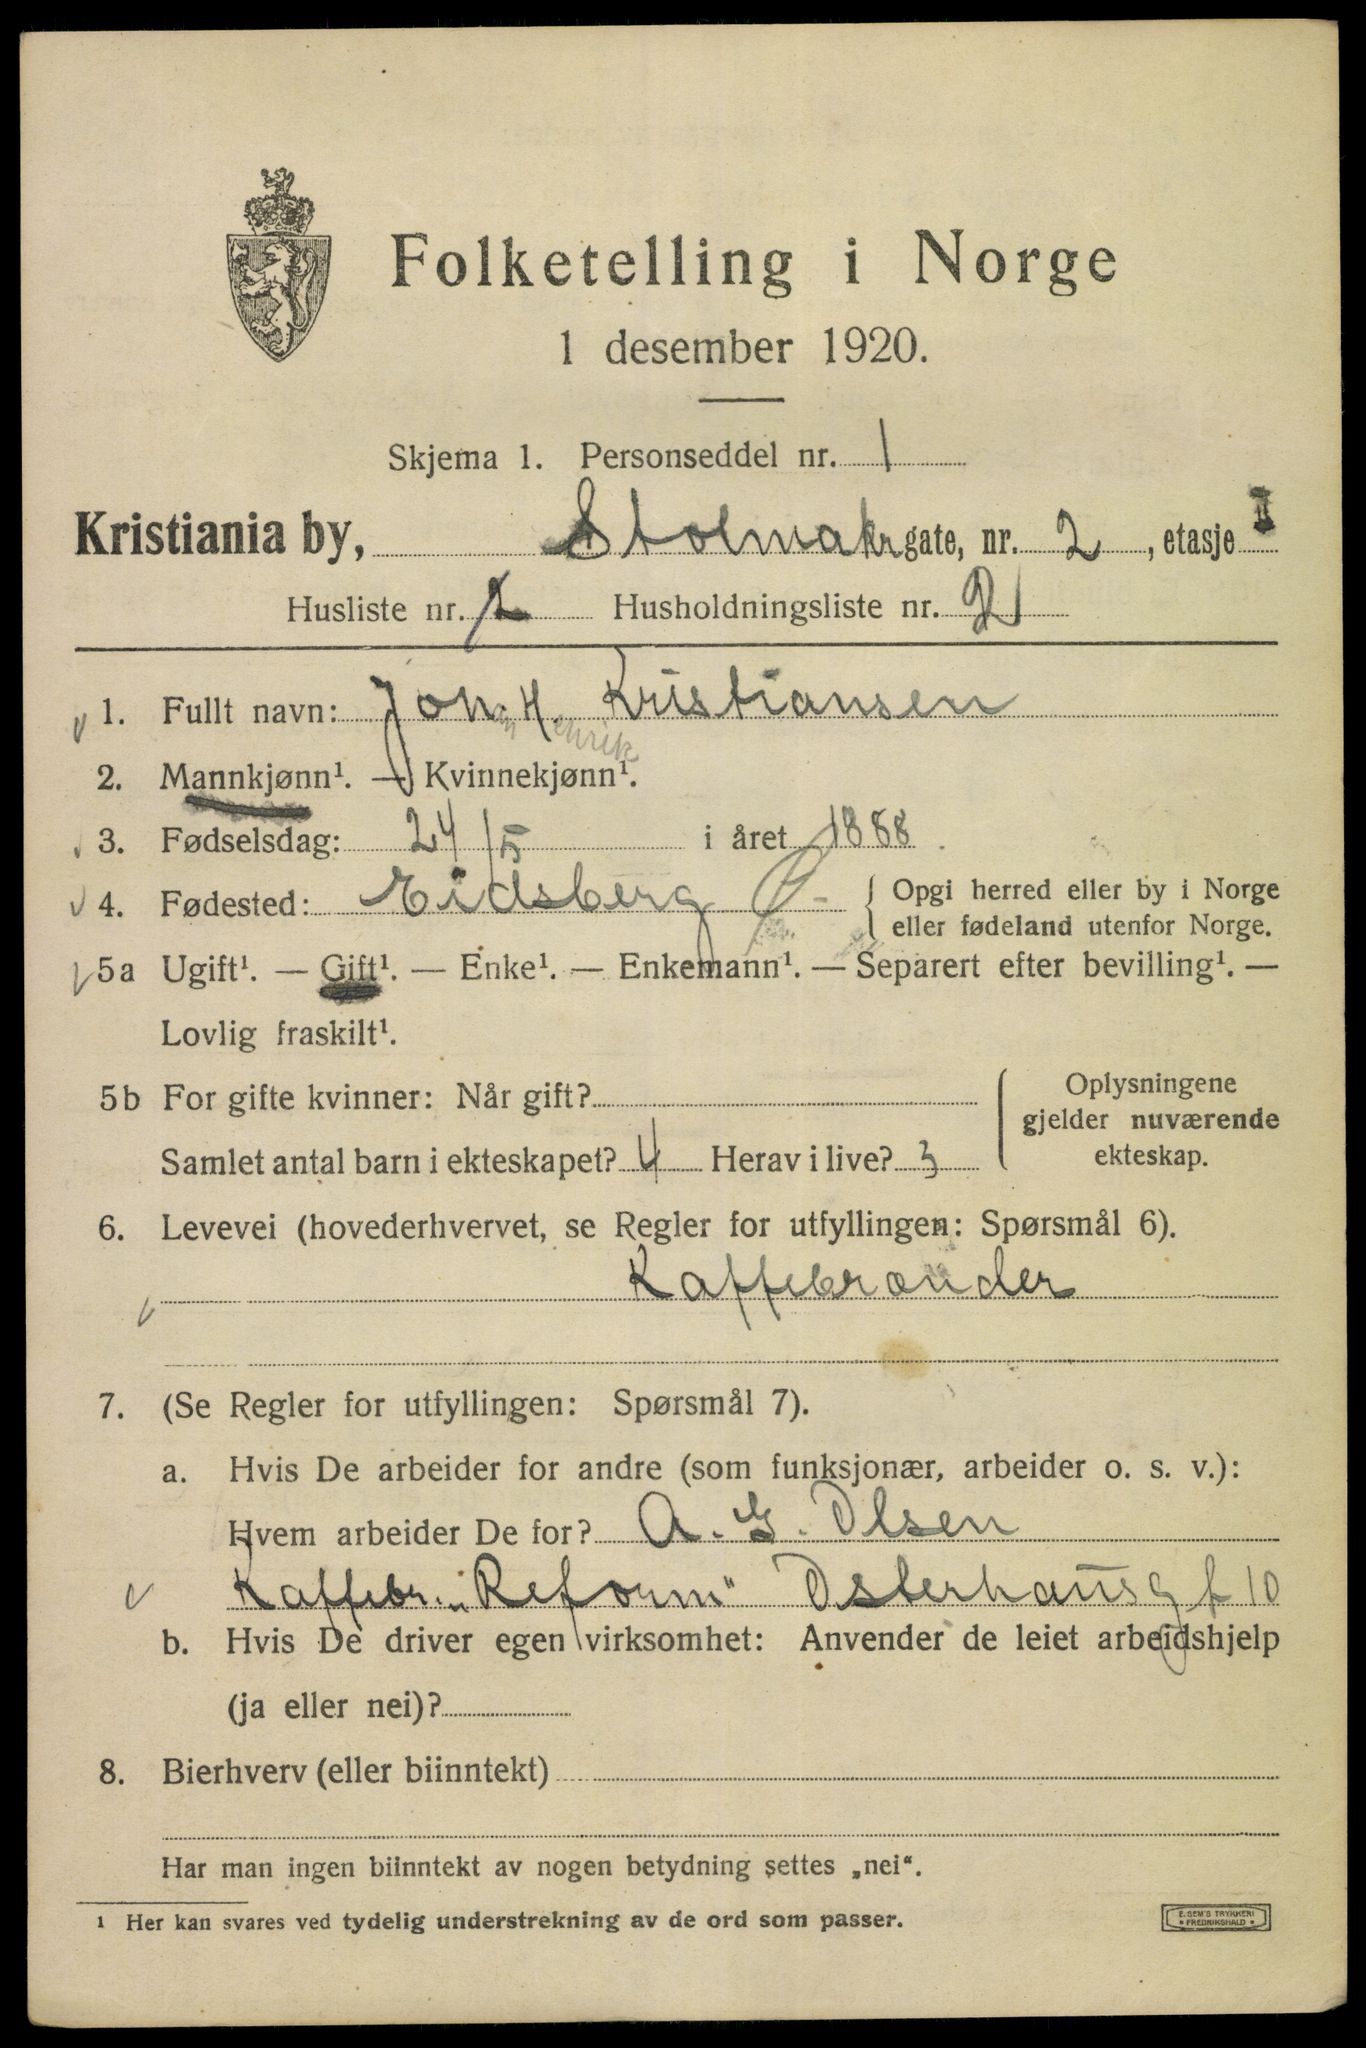 Folketelling i Norge
1 desember 1920.
Skjema 1. Personseddel nr. 1
Kristiania by, Stolmakr gate, nr. 2, etasje II
Husliste nr. Husholdningsliste nr. 2
1. Fullt navn: Joh. H. Kristiansen
enrik
2. Mannkjønn¹. — Kvinnekjønn¹.
3. Fødselsdag: 24/5 i året 1888.
4. Fødested: Eidsberg Ø - { Opgi herred eller by i Norge
eller fødeland utenfor Norge.
5a Ugift¹. — Gift¹. — Enke¹. — Enkemann¹. — Separert efter bevilling¹. —
Lovlig fraskilt¹.
5b For gifte kvinner: Når gift?
Samlet antal barn i ekteskapet? 4 Herav i live? 3
Oplysningene
gjelder nuværende
ekteskap.
6. Levevei (hovederhvervet, se Regler for utfyllingen: Spørsmål 6).
Kaffebrænder
7. (Se Regler for utfyllingen: Spørsmål 7).
a. Hvis De arbeider for andre (som funksjonær, arbeider o. s. v.):
Hvem arbeider De for? A. G. Olsen
Kaffebr. „Reform" Osterhausgt 10
b. Hvis De driver egen virksomhet: Anvender de leiet arbeidshjelp
(ja eller nei)?
8. Bierhverv (eller biinntekt)
Har man ingen biinntekt av nogen betydning settes „nei“.
¹ Her kan svares ved tydelig understrekning av de ord som passer.
E. SEM'S TRYKKERI
• FREDRIKSHALD •